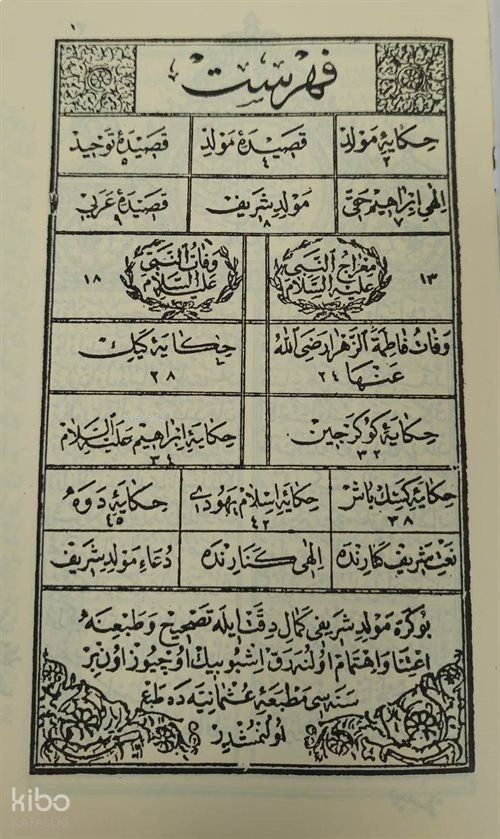 فهرست
حكايۀ مولد ٢
قصيدۀ مولد ٤
قصيدۀ توحيد ٥
الهى ابراهيم حقى ٧
مولد شريف ٨
قصيدۀ عربى ٩
معراج النبى عليه السلام ١٣
وفات النبى عليه السلام ١٨
وفات فاطمة الزهرا رضى الله عنها ٢٤
حكايۀ كيك ٢٨
حكايۀ كوكرجين ٣٢
حكايۀ ابراهيم عليه السلام ٣٤
حكايۀ كسك باش ٣٨
حكايۀ اسلام يهودى ٤٢
حكايۀ دوه ٤٥
نعت شريف كنارنده
الهى كنارنده
دعاء مولد شريف
بو كره مولد شريفى كمال دقت ايله تصحيح و طبعنه
اعتنا و اهتمام اولنه رق اشبو بيك اوچيوز اون بر
سنه سى مطبعۀ عثمانيه ده طبع
اولنمشدر
kibo